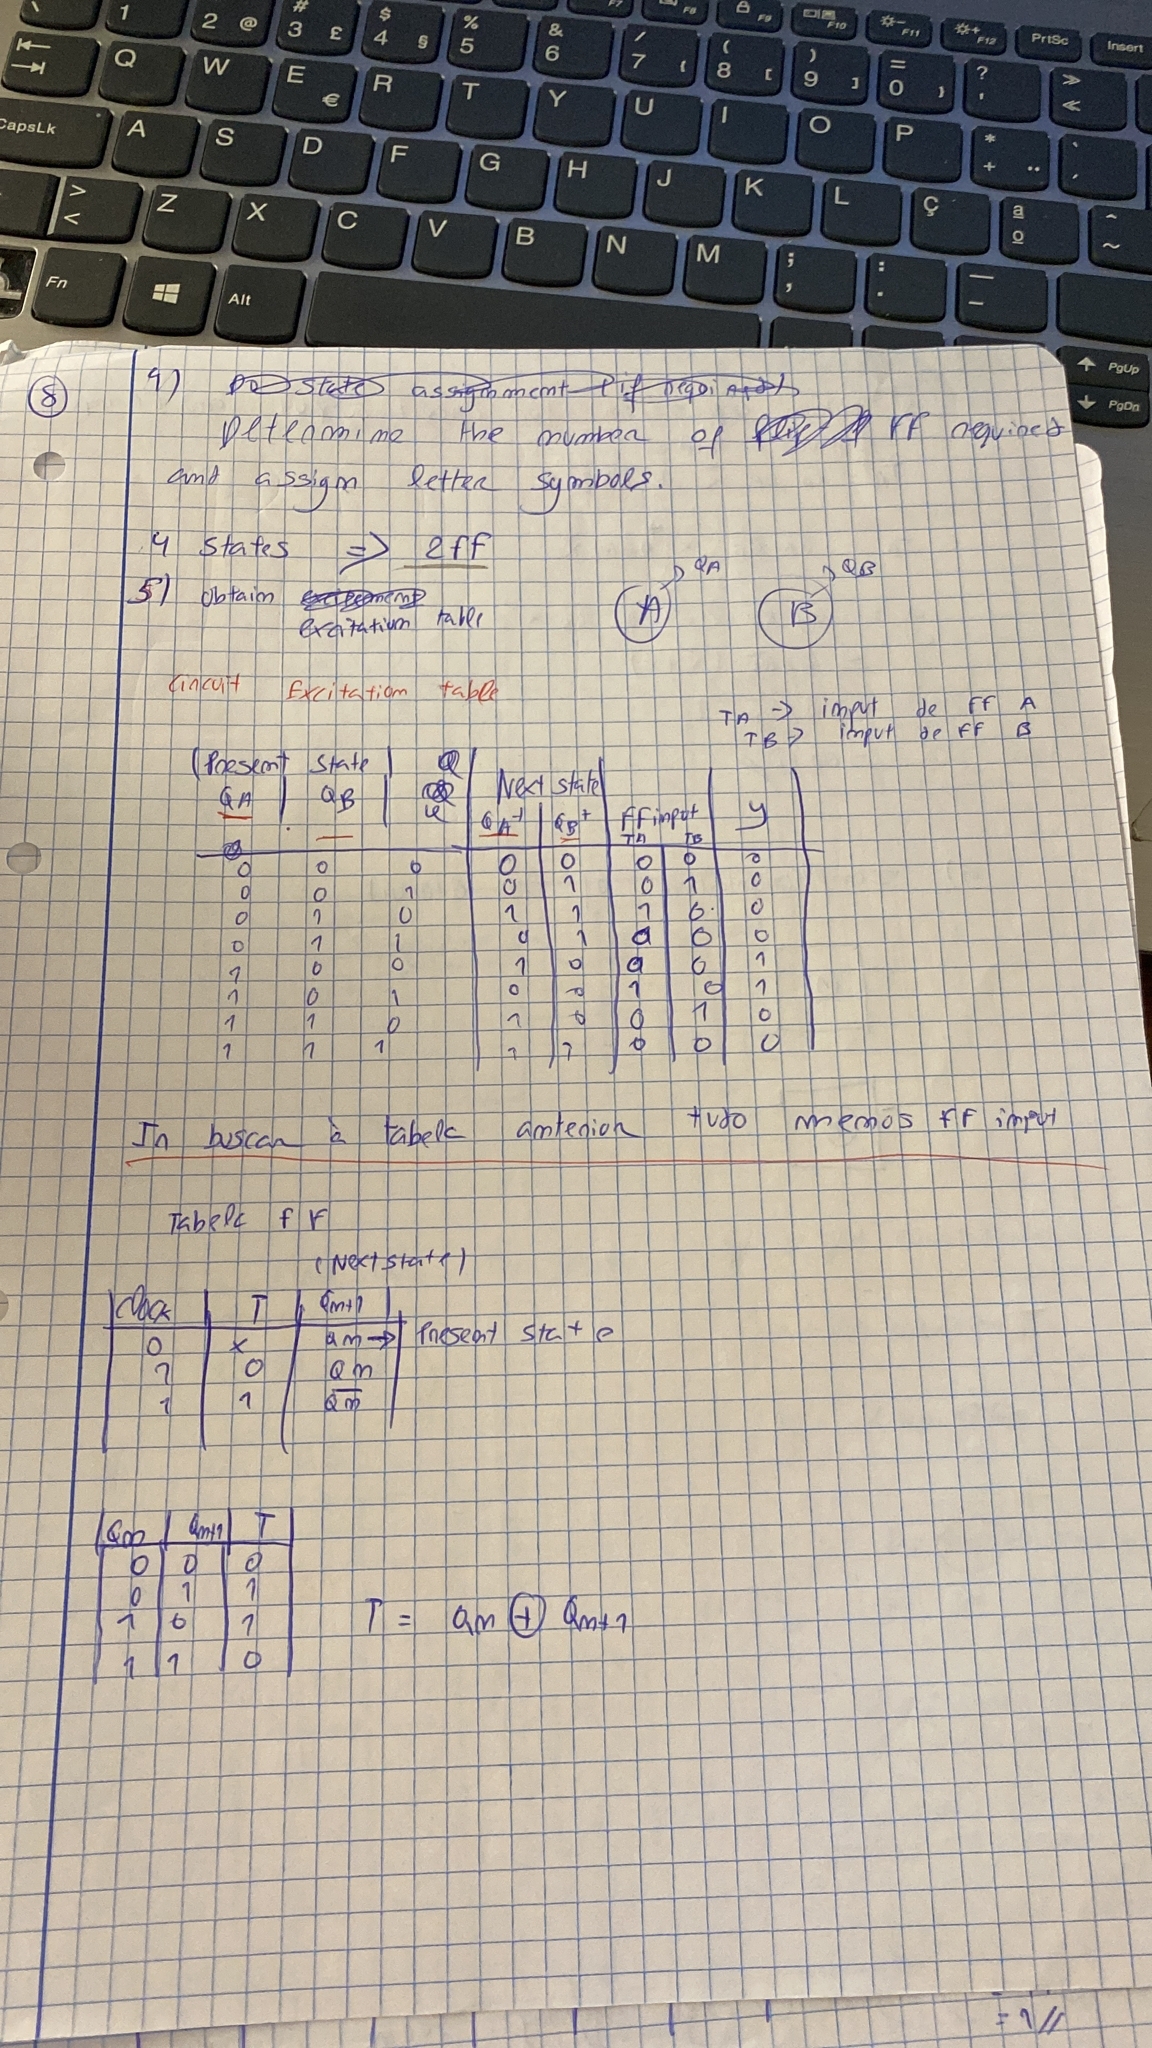 1 2 @ # 3 £ $ 4 § % 5 & 6 / 7 ( 8 [ ) 9 ] = 0 } ? ' » « PrtSc Insert
F7 F8 F9 F10 F11 F12
Q W E € R T Y U I O P * + ¨ ` ´
CapsLk A S D F G H J K L Ç ª º ^ ~
> < Z X C V B N M ; , : . _ -
Fn Alt PgUp
PgDn
8
4) Do State assignment (if required)
Determine the number of FF required
and assign letter symbols.
4 States => 2ff
5) obtain
excitation table
A QA B QB
Circuit Excitation table
TA -> input de FF A
TB -> input de FF B
Present State Next state FF input y
QA QB QA+ QB+ TA TB
0 0 0 0 0 0 0 0
0 0 1 0 1 0 1 0
0 1 0 1 1 1 0 0
0 1 1 0 1 0 0 0
1 0 0 1 0 0 0 1
1 0 1 0 0 1 0 1
1 1 0 1 0 0 1 0
1 1 1 1 1 0 0 0
Ir buscar à tabela anterior tudo menos FF input
Tabela FF
(Next state)
Clock T Qn+1
0 x Qn -> Present state
1 0 Qn
1 1 Q̅n̅
Qn Qn+1 T
0 0 0
0 1 1
1 0 1 T = Qn ⊕ Qn+1
1 1 0
= 1 //